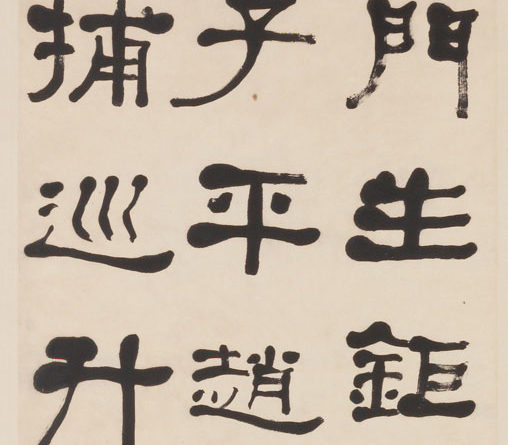 門生鉅
子平趙
捕巡升